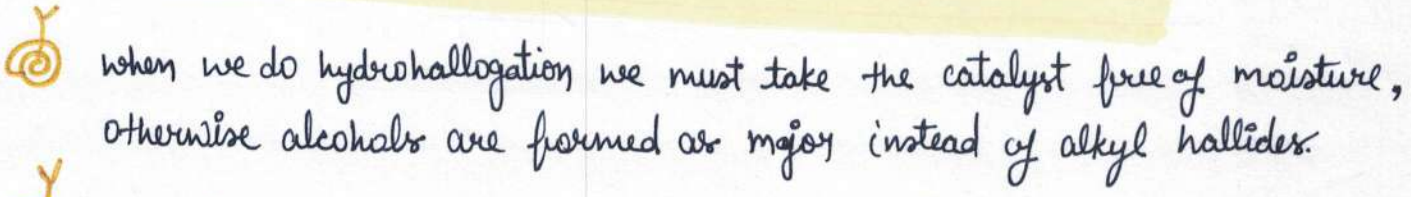 when we do hydrohallogation we must take the catalyst free of moisture,
otherwise alcohals are formed as major instead of alkyl hallides.